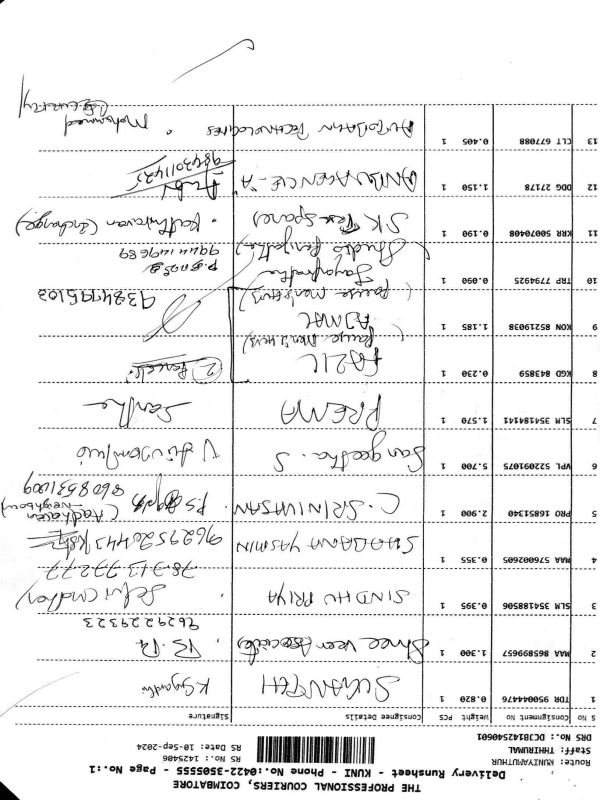 THE PROFESSIONAL COURIERS, COIMBATORE
Delivery Runsheet - KUNI - Phone No.:0422-3505555 - Page No.:1
Route: KUNIYAMUTHUR
Staff: THHIRUMAL
DRS No.: DC3B142540601
RS No.: 1425406
RS Date: 10-Sep-2024
S No Consignment No Weight PCS Consignee Details Signature
1 TDR 950044476 0.820 1 SUKANTEH K. Suganthi
2 MAA 865899657 1.300 1 Shree Veer Associates
9629229323
3 SLM 354188506 0.395 1 SINDHU PRIYA Selvi (mother)
78713 77277
4 MAA 576002605 0.355 1 SHABANA YASMIN 9629520443
5 PRO 16851340 2.900 1 C. SRINIVASAN. (Aadhavan Neighbour)
8608531009
6 VPL 522001075 5.700 1 Sangeetha. S
7 SLM 354184141 1.570 1 PREMA Santhe
8 KGD 843859 0.230 1 FAZIL (2) Parcel
(Pause Men's Hers)
9 KON 85219038 1.185 1 AJMAL 9384795103
(Pause Men's Hers)
10 TRP 7794925 0.090 1 Jayapratha
(Studio Parijatha) 9944149689
11 KRR 50070408 0.190 1 S.K Tex Spares Kathiravan (Incharge)
12 DDG 27178 1.150 1 ANBU AGENCIE-"A" Anbu
9843011425
13 CLT 677088 0.405 1 AUTODAWN TECHNOLOGIES Mohammed
(Security)